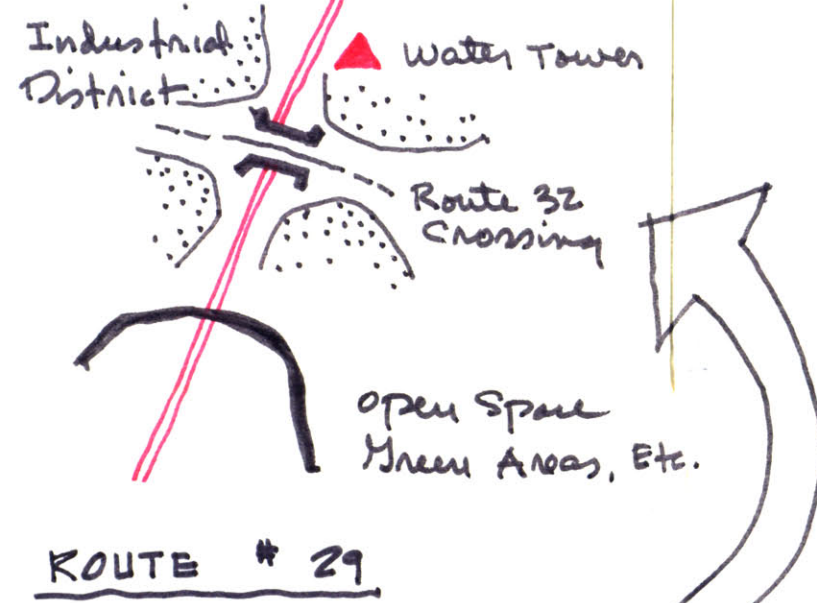 Industrial
District
Water Tower
Route 32
Crossing
Open Space
Green Areas, Etc.
ROUTE # 29